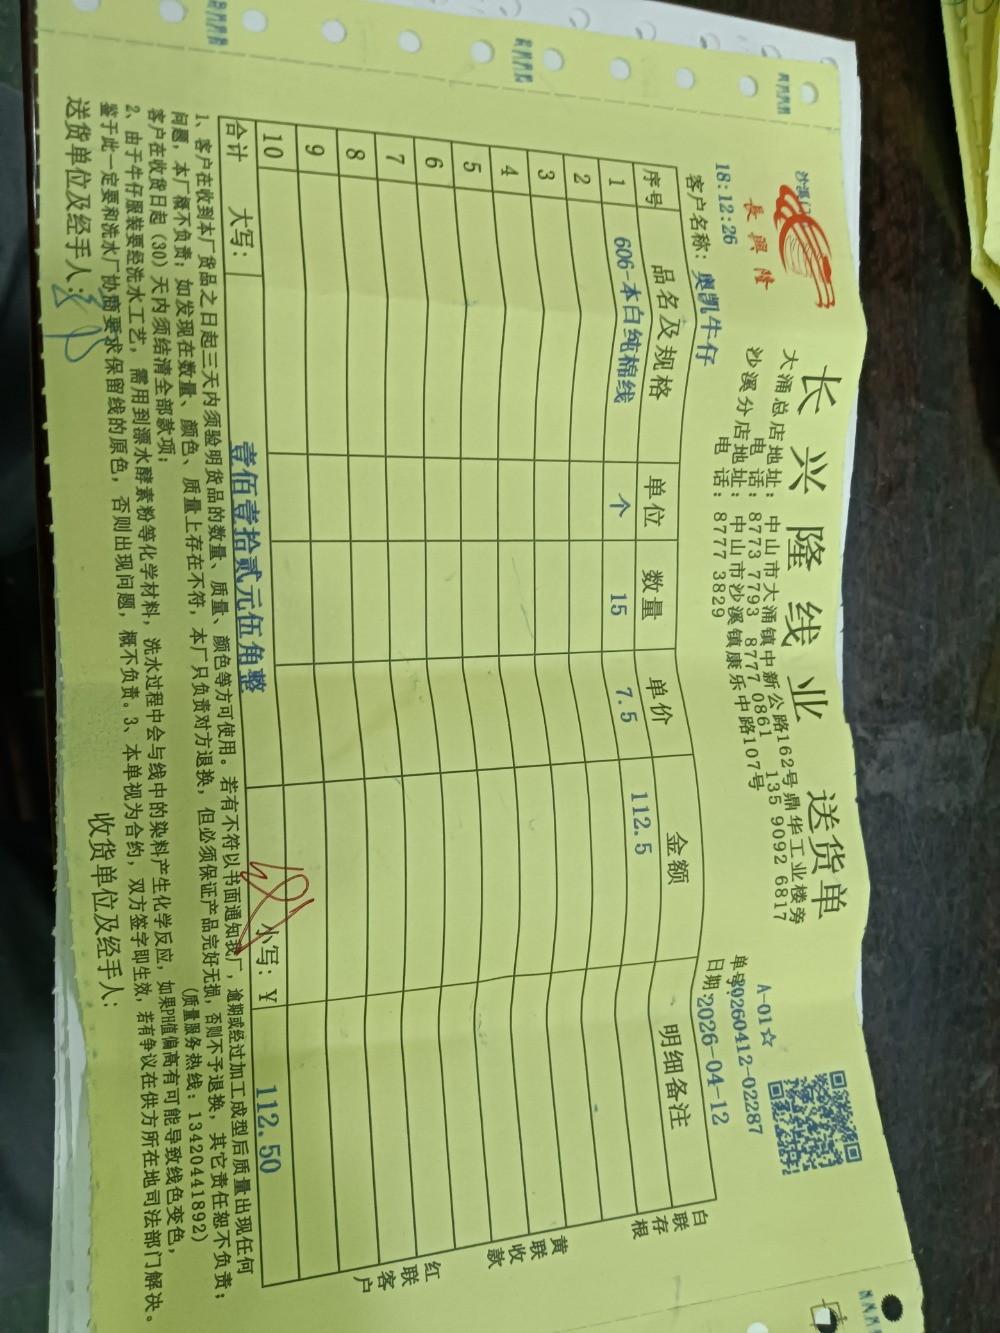 沙溪门
長興隆
长兴隆线业 送货单
大涌总店地址：中山市大涌镇中新公路162号鼎华工业楼旁
电 话：8773 7793 8777 0861 135 9092 6817
沙溪分店地址：中山市沙溪镇康乐中路107号
电 话：8777 3829
A-01☆
单号:20260412-02287
日期:2026-04-12
18:12:26
客户名称：奥凯牛仔
序号 品名及规格 单位 数量 单价 金额 明细备注
1 606-本白纯棉线 个 15 7.5 112.5
2
3
4
5
6
7
8
9
10
合计 大写： 壹佰壹拾贰元伍角整 小写：￥ 112.50
白联存根
黄联收款
红联客户
1、客户在收到本厂货品之日起三天内须验明货品的数量、质量、颜色等方可使用。若有不符以书面通知我厂，逾期或经过加工成型后质量出现任何
问题，本厂概不负责；如发现在数量、颜色、质量上存在不符，本厂只负责对方退换，但必须保证产品完好无损，否则不予退换，其它责任恕不负责；
客户在收货日起（30）天内须结清全部款项； （质量服务热线：13420441892）
2、由于牛仔服装要经洗水工艺，需用到漂水酵素粉等化学材料，洗水过程中会与线中的染料产生化学反应，如果PH值偏高有可能导致线色变色，
鉴于此一定要和洗水厂协商要求保留线的原色，否则出现问题，概不负责。3、本单视为合约，双方签字即生效，若有争议在供方所在地司法部门解决。
送货单位及经手人： 收货单位及经手人：